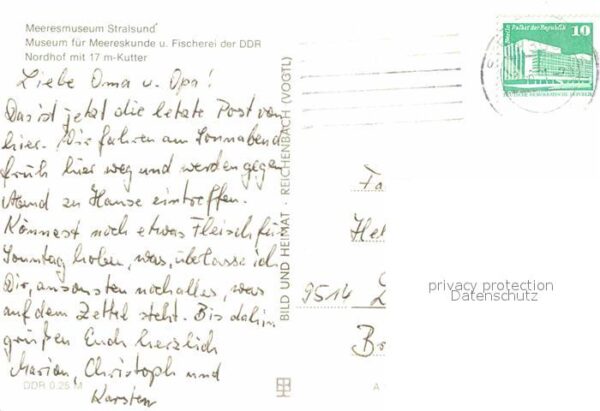 Meeresmuseum Stralsund
Museum für Meereskunde u. Fischerei der DDR
Nordhof mit 17 m-Kutter
Liebe Oma u. Opa!
Das ist jetzt die letzte Post von
hier. Wir fahren am Sonnabend
früh hier weg und werden gegen
Abend zu Hause eintreffen.
Könnest noch etwas Fleisch für
Sonntag holen, was, überlasse ich
Dir, ansonsten noch alles, was
auf dem Zettel steht. Bis dahin
grüßen Euch herzlich
Marion, Christoph und
Karsten
DDR 0.25 M
BILD UND HEIMAT · REICHENBACH (VOGTL)
Berlin Palast der Republik
10
DEUTSCHE DEMOKRATISCHE REPUBLIK
Fa
He
9514
B
privacy protection
Datenschutz
A